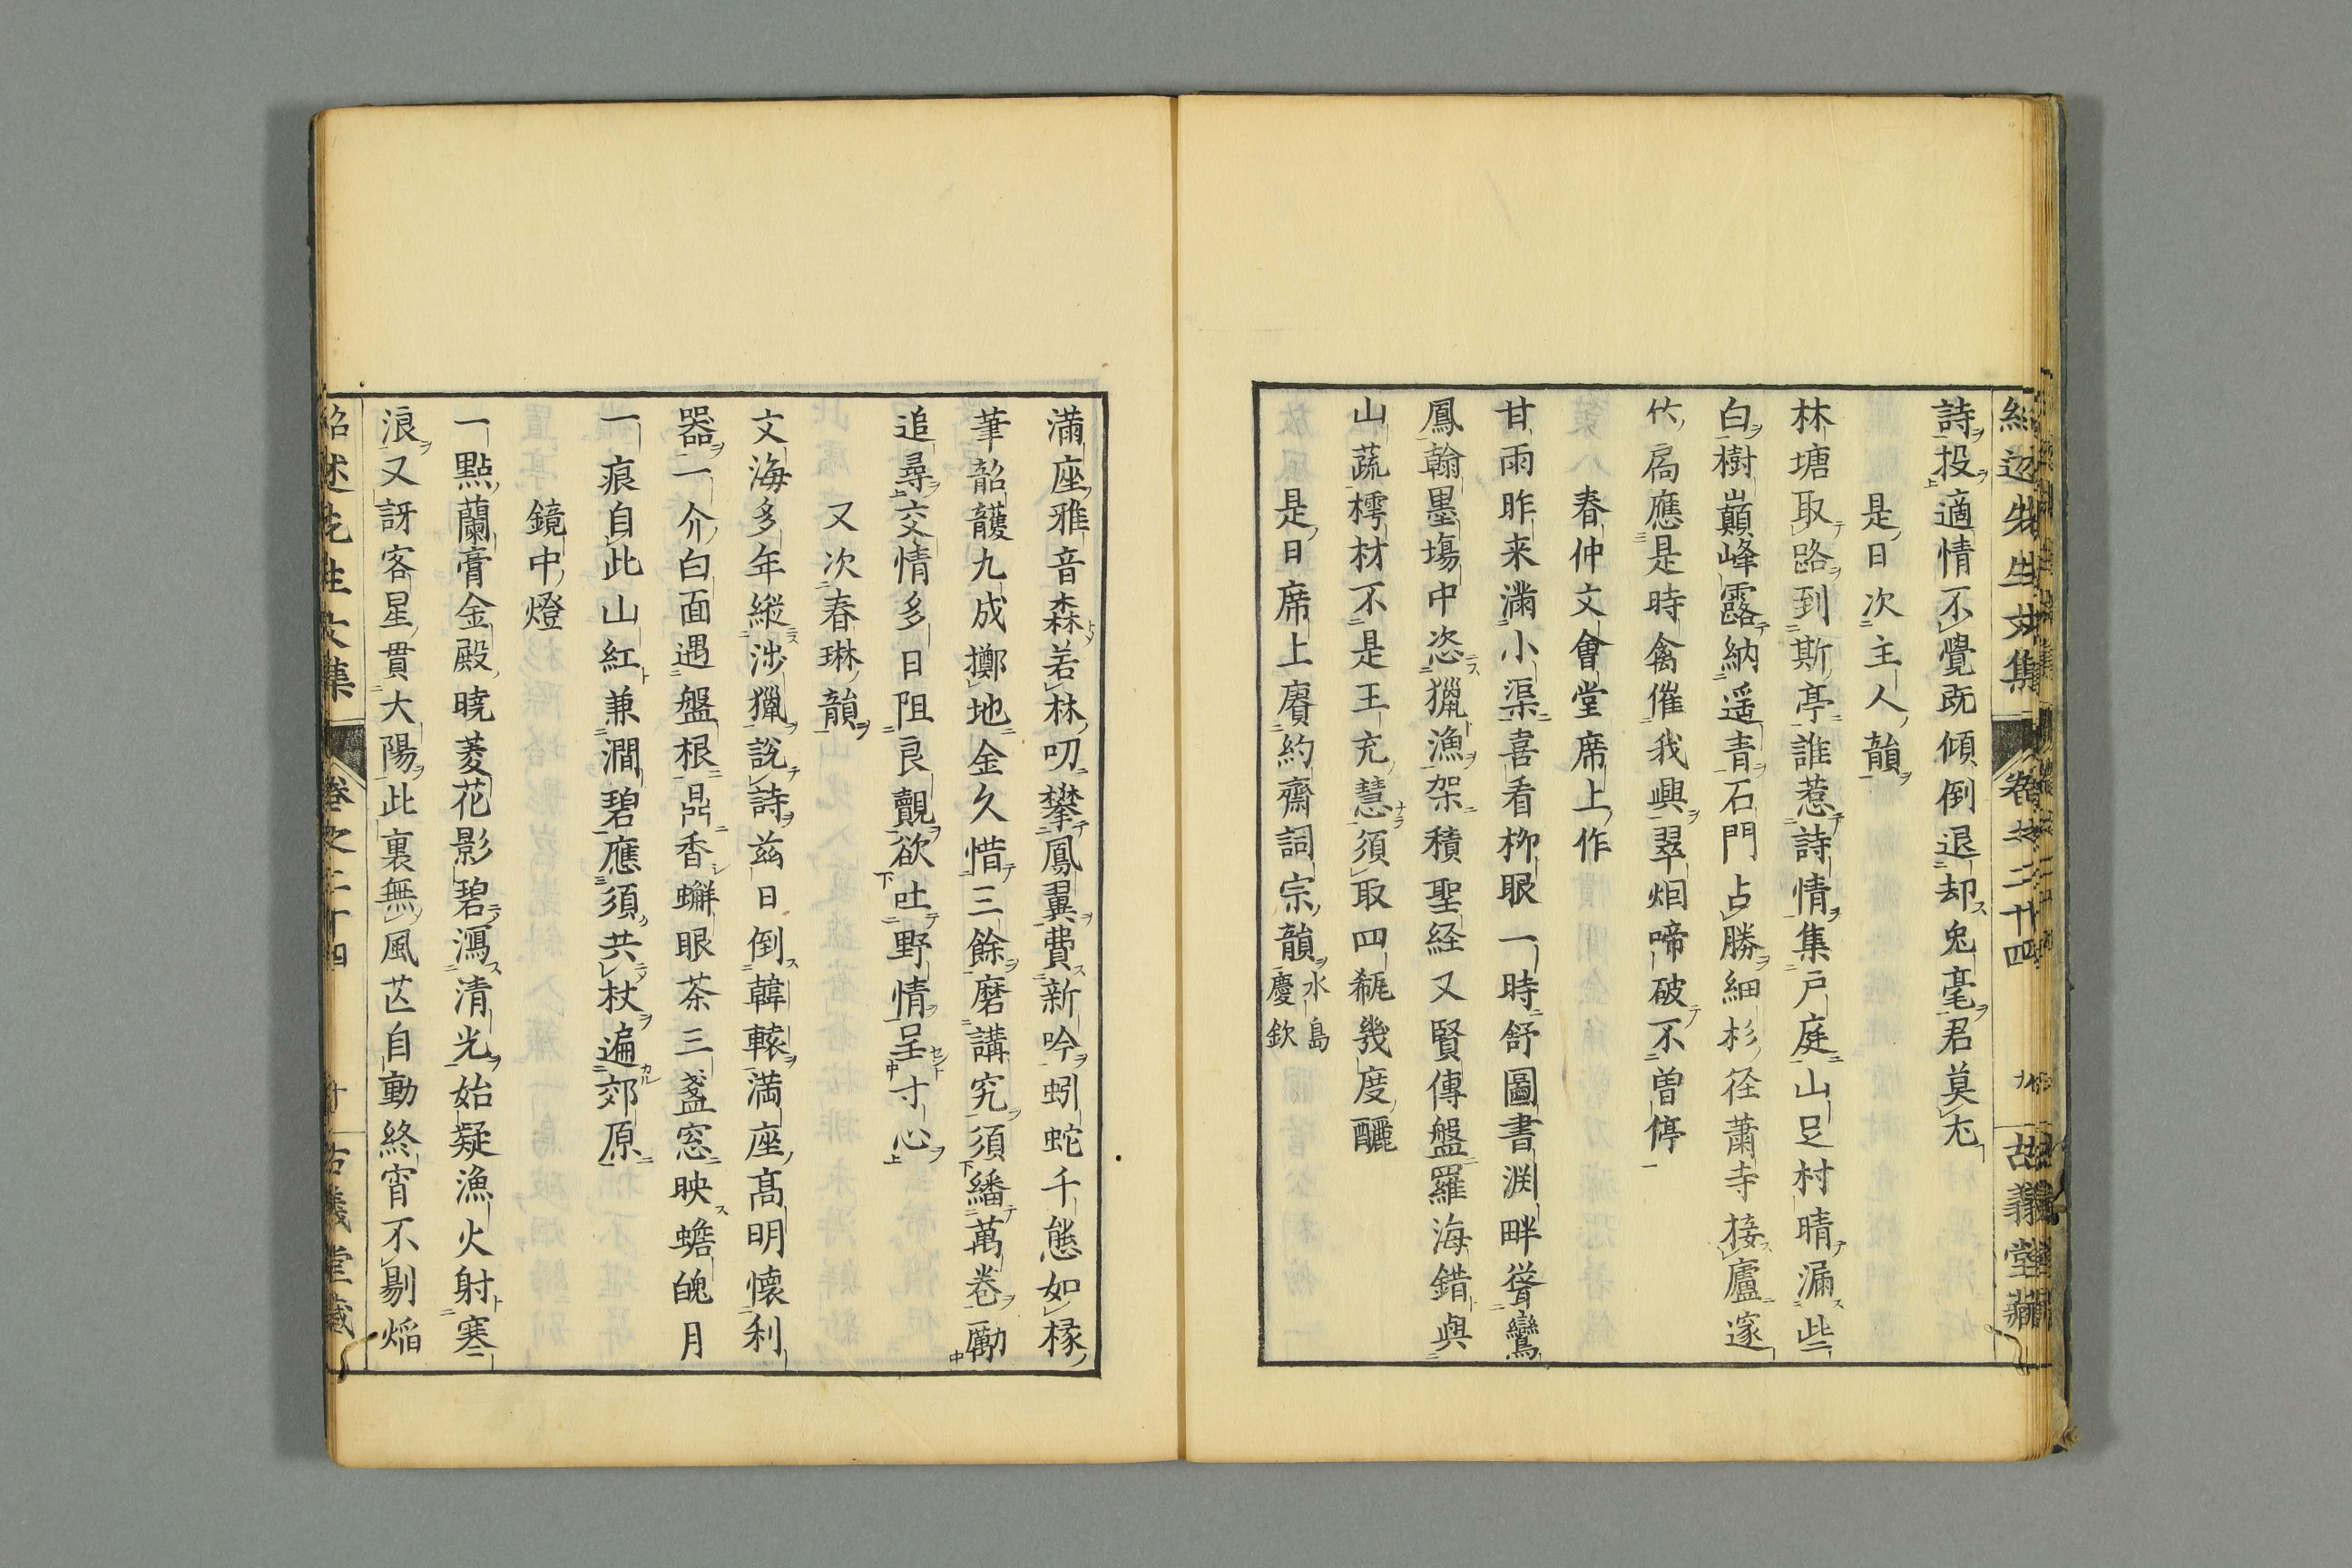 紹述先生文集 卷之二十四 九 古義堂藏
詩投適情不覺既傾倒退却兔毫君莫尤
是日次主人韻
林塘取路到斯亭誰惹詩情集戸庭山足村晴漏些
白樹巓峰露納遥青石門占勝細杉径蕭寺接廬邃
竹扄應是時禽催我興翠烟啼破不曽停
春仲文會堂席上作
甘雨昨来滿小渠喜看柳眼一時舒圖書渕畔聳鸞
鳳翰墨塲中恣獵漁架積聖経又賢傳盤羅海錯與
山蔬樗材不是王充慧須取四瓻幾度釃
是日席上賡約齋詞宗韻水島慶欽
満座雅音森若林叨攀鳳翼費新吟蚓蛇千態如椽
筆韶頀九成擲地金久惜三餘磨講究須繙萬卷勵
追尋交情多日阻良覿欲吐野情呈寸心
又次春琳韻
文海多年縦渉獵說詩茲日倒韓轅満座髙明懐利
器一介白面遇盤根鼎香蠏眼茶三盞窓映蟾魄月
一痕自此山紅兼澗碧應須共杖遍郊原
鏡中燈
一點蘭膏金殿曉菱花影碧瀉清光始疑漁火射寒
浪又訝客星貫大陽此裏無風芯自動終宵不剔焰
紹述先生文集 卷之二十四 十 古義堂藏